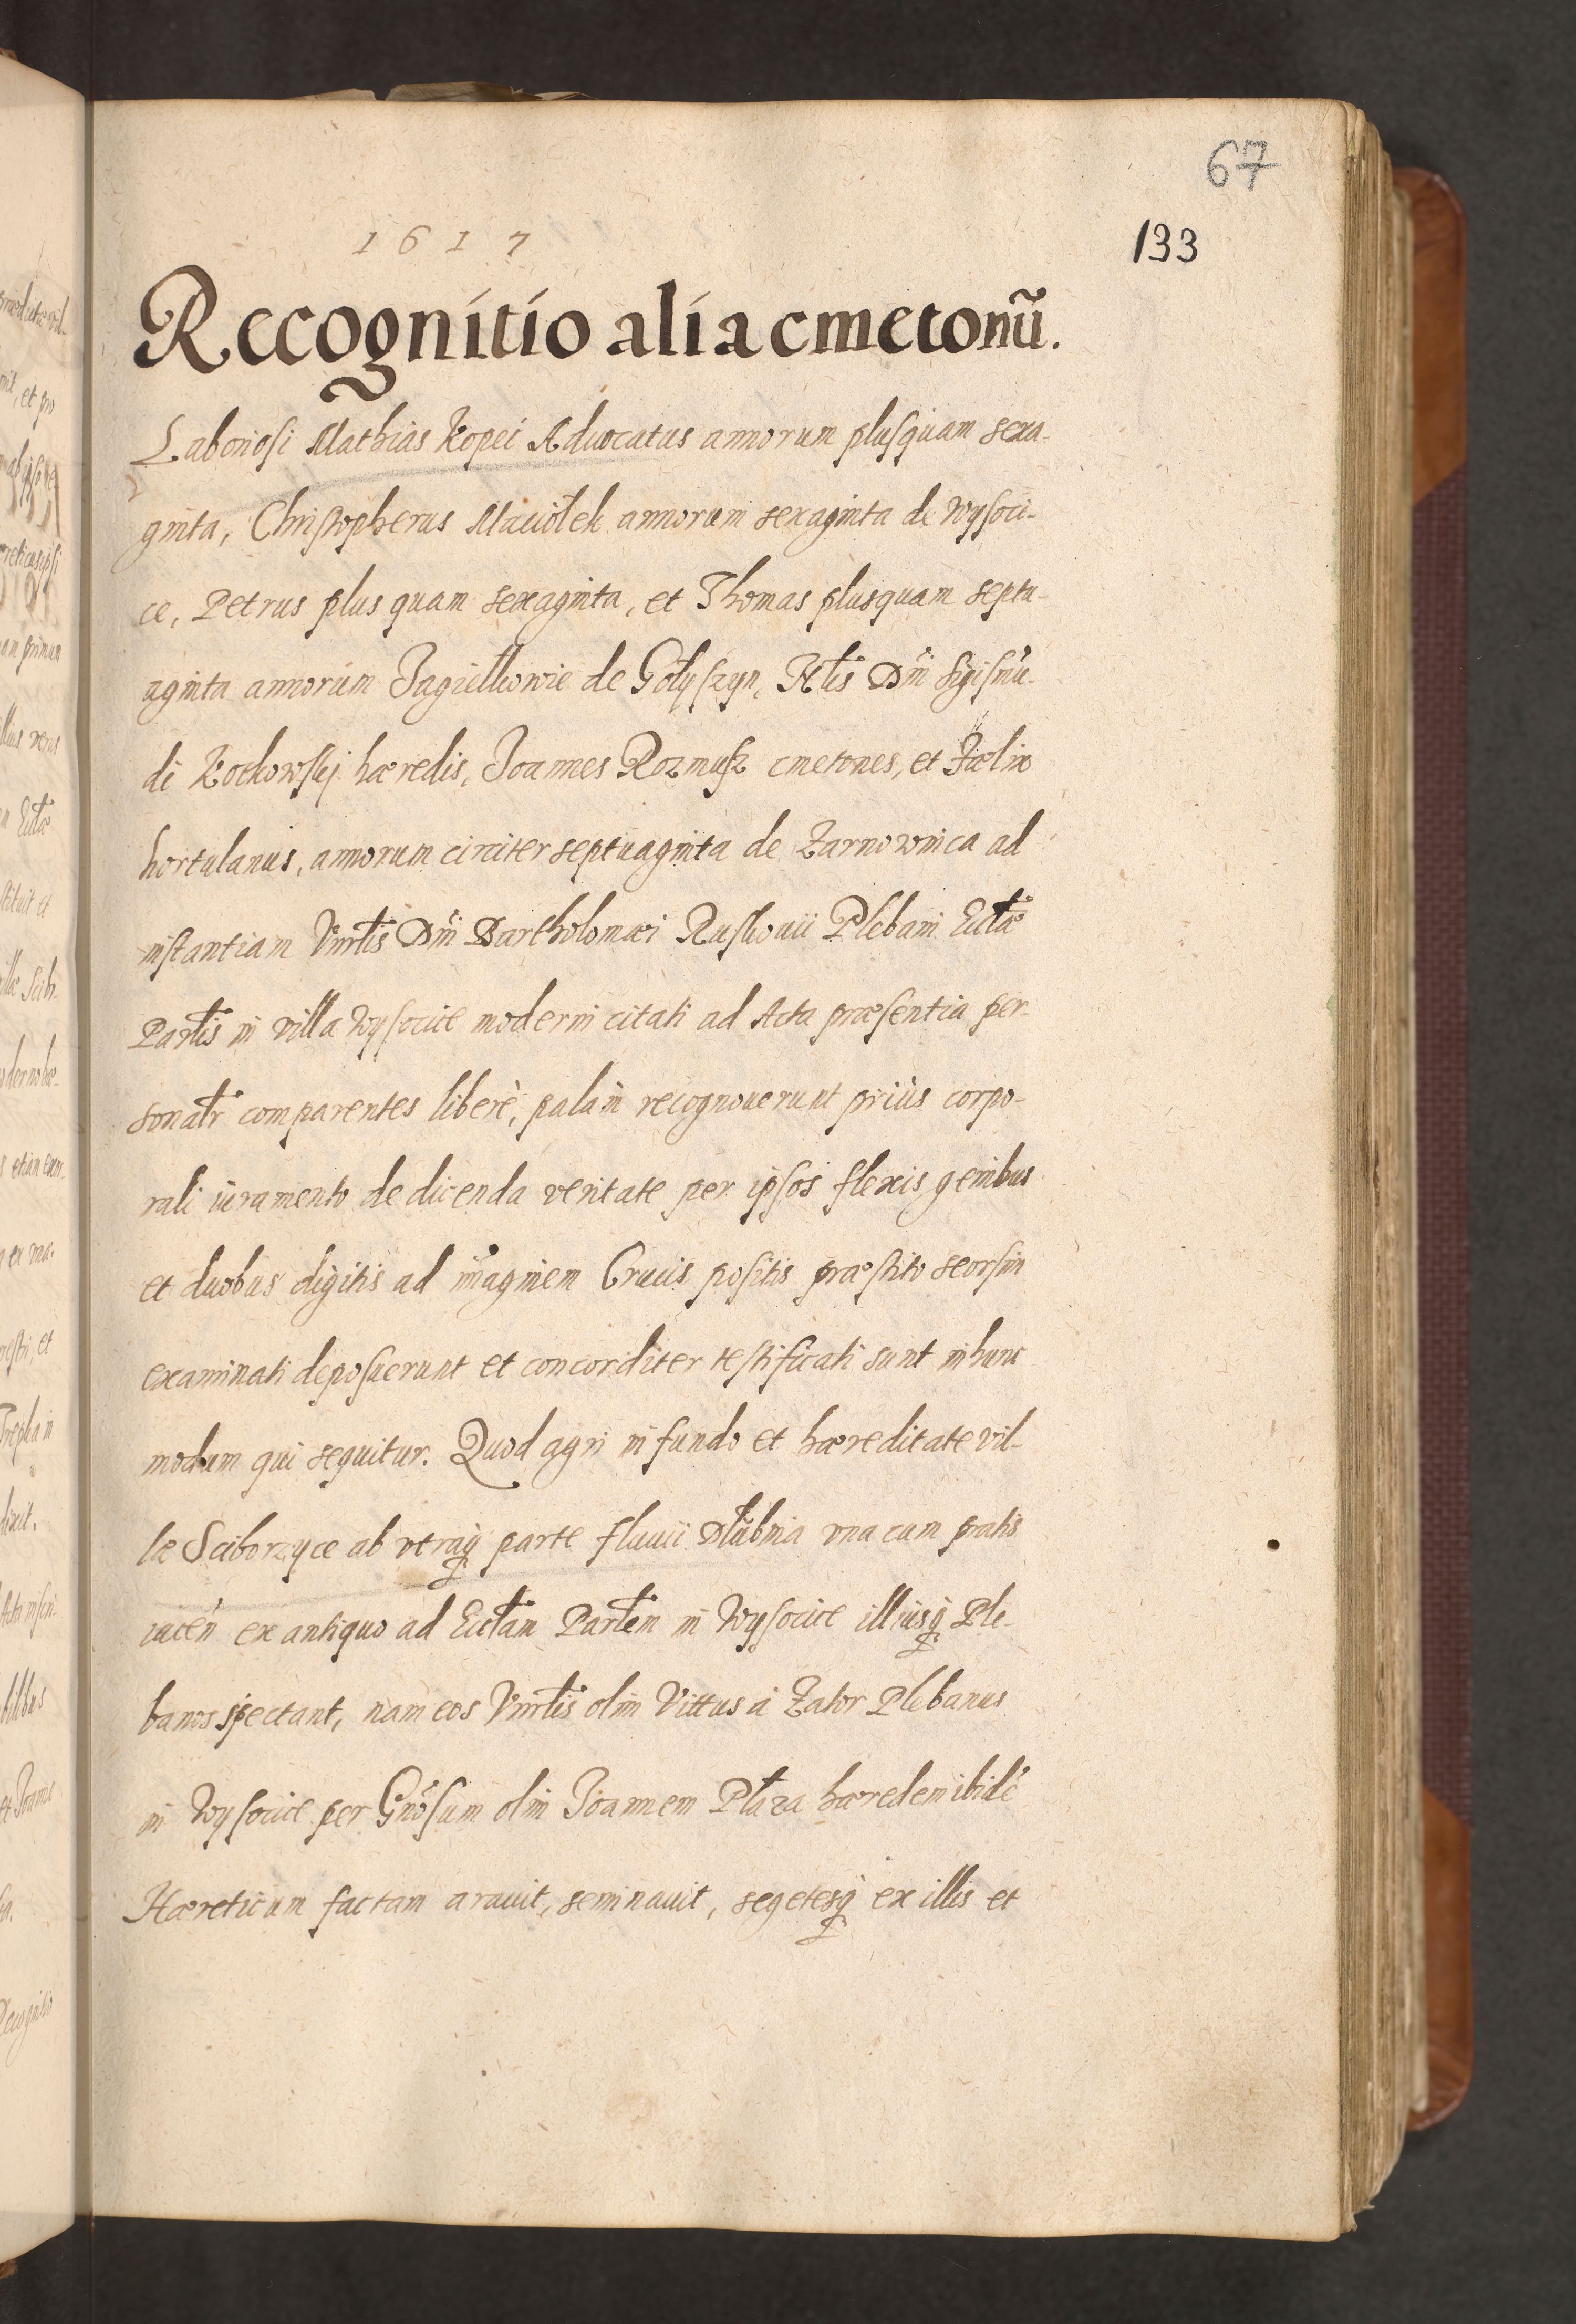 67
133
1617
Recognitio alia cmetonũ.
Laboriosi Mathias Kopeć Aduocatus annorum plusquam sexa-
ginta, Christopherus Maciołek annorum sexaginta de Wysoci-
ce, Petrus plus quam sexaginta, et Thomas plusquam septu-
aginta annorum Jagiełłowie de Gołyszyn, Nlis Dñi Sigismũ-
di Kotkowskÿ hæredis, Joannes Rozmusz cmetones, et Fælix
hortulanus, annorum circiter septuaginta de Żarnowica ad
instantiam Vnrłis Dñi Bartholomæi Ruskouii Plebani Ecłæ
Parłis in villa Wysocice moderni citati ad Acta præsentia per-
sonałr comparentes liberè, palàm recognouerunt priùs corpo-
rali iuramento de dicenda veritate per ipsos flexis genibus
et duobus digitis ad imaginem Crucis positis præstito seorsim
examinati deposuerunt et concorditer testificati sunt in hunc
modum qui sequitur. Quod agri in fundo et hæreditate vil-
læ Sciborzyce ab vtraq; parte fluuii Dłubnia vna cum pratis
iaceñ ex antiquo ad Ecłam Parłem in Wysocice illiusq; Ple-
banos spectant, nam eos Vnrłis olim Vittus à Zator Plebanus
in Wysocice per Gnõsum olim Joannem Płaza hæredem ibidẽ
Hæreticum factam arauit, seminauit, segetesq; ex illis et